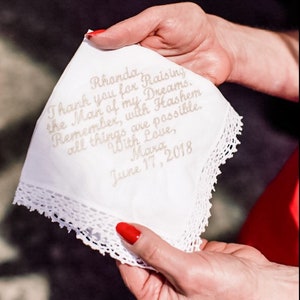 Rhonda,
Thank you for Raising
the Man of my Dreams.
Remember, with Hashem
all things are possible.
With Love,
Maxa
June 17, 2018